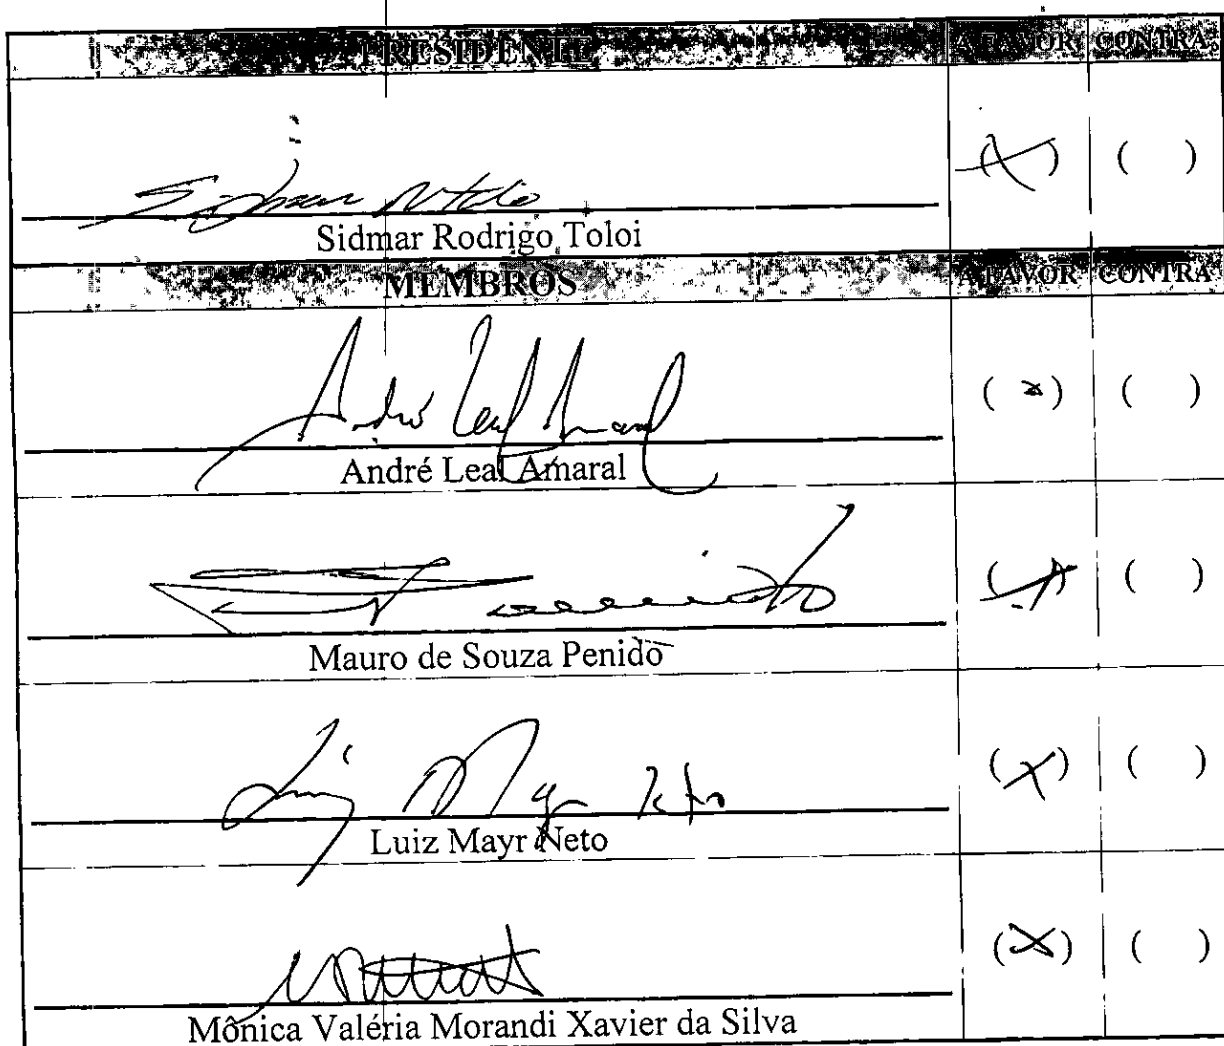 PRESIDENTE A FAVOR CONTRA
(X) ( )
Sidmar Rodrigo Toloi
MEMBROS A FAVOR CONTRA
André Leal Amaral
(x) ( )
André Leal Amaral
(X) ( )
Mauro de Souza Penido
Luiz Mayr Neto
(X) ( )
Luiz Mayr Neto
(X) ( )
Mônica Valéria Morandi Xavier da Silva